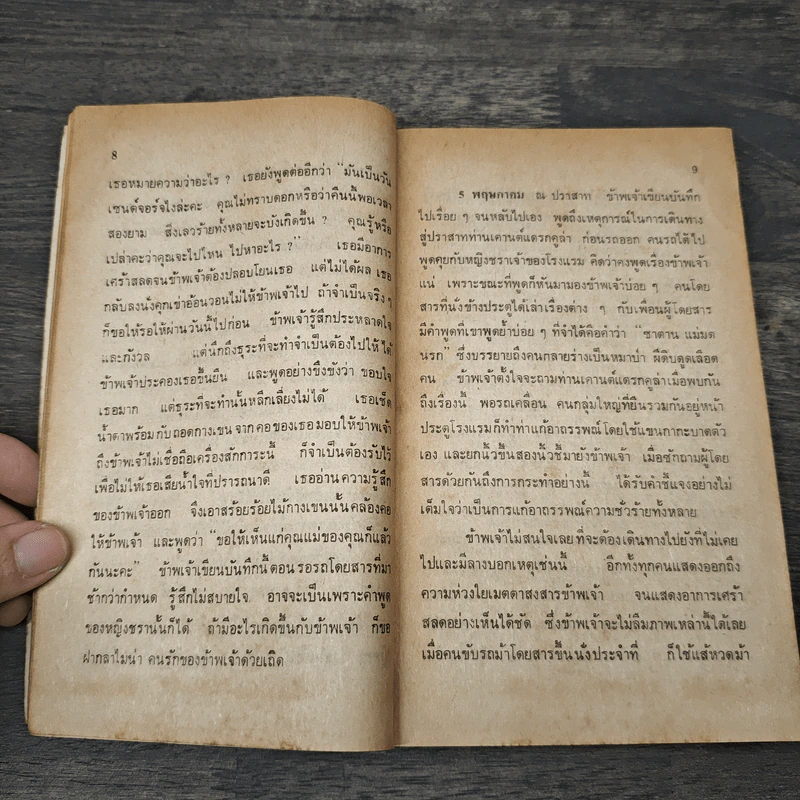 8
เธอหมายความว่าอะไร ? เธอยังพูดต่ออีกว่า "มันเป็นวัน
เซนต์จอร์จไงล่ะคะ คุณไม่ทราบดอกหรือว่าคืนนี้พอเวลา
สองยาม สิ่งเลวร้ายทั้งหลายจะบังเกิดขึ้น ? คุณรู้หรือ
เปล่าคะว่าคุณจะไปไหน ไปหาอะไร ?" เธอมีอาการ
เศร้าสลดจนข้าพเจ้าต้องปลอบโยนเธอ แต่ไม่ได้ผล เธอ
กลับลงนั่งคุกเข่าอ้อนวอนไม่ให้ข้าพเจ้าไป ถ้าจำเป็นจริง ๆ
ก็ขอให้รอให้ผ่านวันนี้ไปก่อน ข้าพเจ้ารู้สึกประหลาดใจ
และกังวล แต่นึกถึงธุระที่จะทำจำเป็นต้องไปให้ได้
ข้าพเจ้าประคองเธอขึ้นยืน และพูดอย่างขึงขังว่า ขอบใจ
เธอมาก แต่ธุระที่จะทำนั้นหลีกเลี่ยงไม่ได้ เธอเช็ด
น้ำตาพร้อมกับถอดกางเขน จากคอของเธอมอบให้ข้าพเจ้า
ถึงข้าพเจ้าไม่เชื่อถือเครื่องสักการะนี้ ก็จำเป็นต้องรับไว้
เพื่อไม่ให้เธอเสียน้ำใจที่ปรารถนาดี เธออ่านความรู้สึก
ของข้าพเจ้าออก จึงเอาสร้อยร้อยไม้กางเขนนั้นคล้องคอ
ให้ข้าพเจ้า และพูดว่า "ขอให้เห็นแก่คุณแม่ของคุณก็แล้ว
กันนะคะ" ข้าพเจ้าเขียนบันทึกนี้ตอนรอรถโดยสารที่มา
ช้ากว่ากำหนด รู้สึกไม่สบายใจ อาจจะเป็นเพราะคำพูด
ของหญิงชรานั้นก็ได้ ถ้ามีอะไรเกิดขึ้นกับข้าพเจ้า ก็ขอ
ฝากลาไมน่า คนรักของข้าพเจ้าด้วยเถิด
9
5 พฤษภาคม ณ ปราสาท ข้าพเจ้าเขียนบันทึก
ไปเรื่อย ๆ จนหลับไปเอง พูดถึงเหตุการณ์ในการเดินทาง
สู่ปราสาทท่านเคานต์แดรกคูล่า ก่อนรถออก คนรถได้ไป
พูดคุยกับหญิงชราเจ้าของโรงแรม คิดว่าคงพูดเรื่องข้าพเจ้า
แน่ เพราะขณะที่พูดก็หันมามองข้าพเจ้าบ่อย ๆ คนโดย
สารที่นั่งข้างประตูได้เล่าเรื่องต่าง ๆ กับเพื่อนผู้โดยสาร
มีคำพูดที่เขาพูดย้ำบ่อย ๆ ที่จำได้คือคำว่า "ซาตาน แม่มด
นรก" ซึ่งบรรยายถึงคนกลายร่างเป็นหมาป่า ผีดิบดูดเลือด
คน ข้าพเจ้าตั้งใจจะถามท่านเคานต์แดรกคูล่าเมื่อพบกัน
ถึงเรื่องนี้ พอรถเคลื่อน คนกลุ่มใหญ่ที่ยืนรวมกันอยู่หน้า
ประตูโรงแรมก็ทำท่าแก้อาถรรพณ์โดยใช้แขนกากะบาดตัว
เอง และยกนิ้วขึ้นสองนิ้วชี้มายังข้าพเจ้า เมื่อซักถามผู้โดย
สารด้วยกันถึงการกระทำอย่างนี้ ได้รับคำชี้แจงอย่างไม่
เต็มใจว่าเป็นการแก้อาถรรพณ์ความชั่วร้ายทั้งหลาย
ข้าพเจ้าไม่สนใจเลย ที่จะต้องเดินทางไปยังที่ไม่เคย
ไปและมีลางบอกเหตุเช่นนี้ อีกทั้งทุกคนแสดงออกถึง
ความห่วงใยเมตตาสงสารข้าพเจ้า จนแสดงอาการเศร้า
สลดอย่างเห็นได้ชัด ซึ่งข้าพเจ้าจะไม่ลืมภาพเหล่านี้ได้เลย
เมื่อคนขับรถม้าโดยสารขึ้นนั่งประจำที่ ก็ใช้แส้หวดม้า